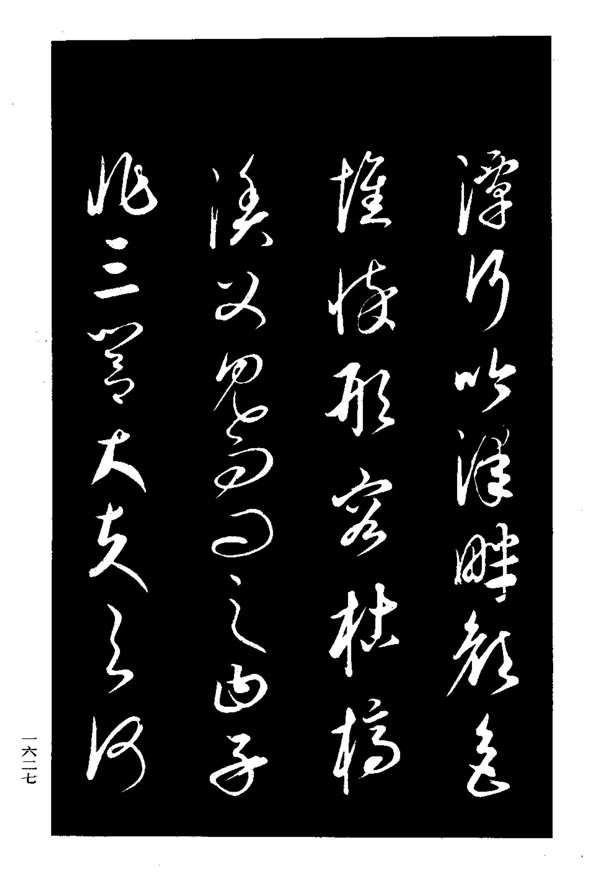 潭行吟澤畔顏色
憔悴形容枯槁
漁父見而問之曰子
非三閭大夫與何
一六二七